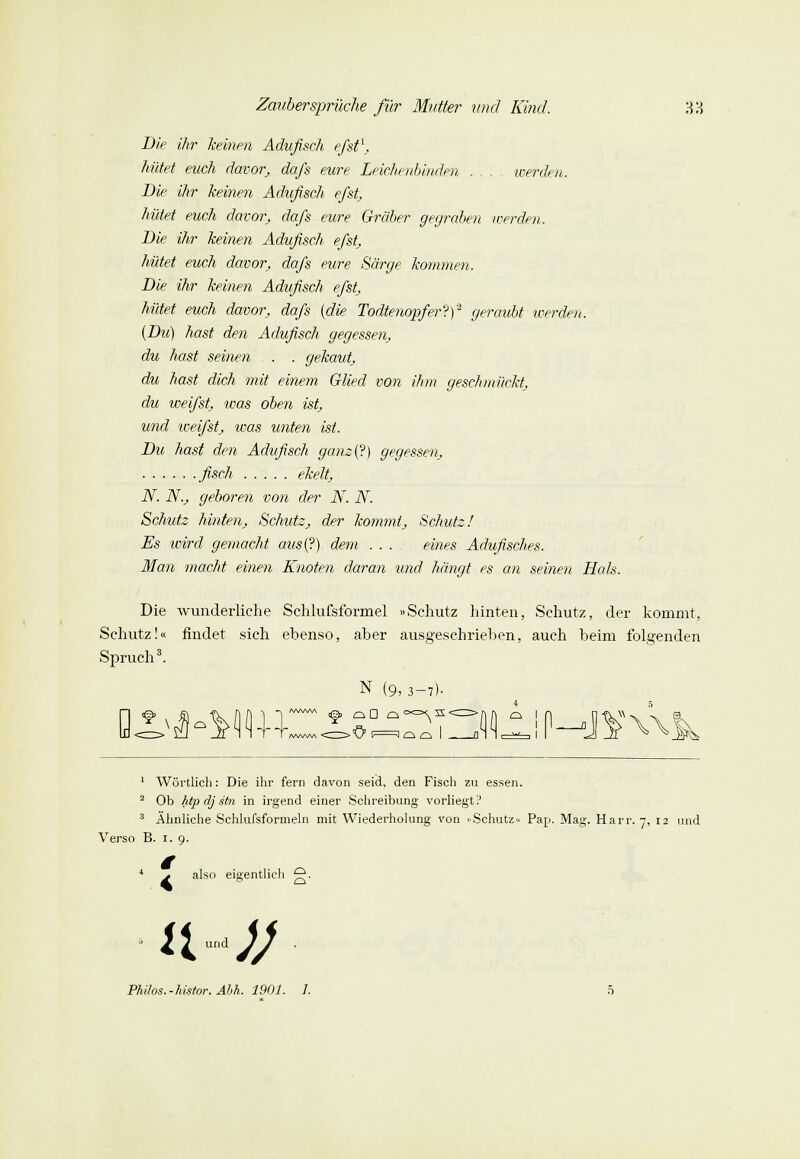 Zaubersprüche für Mutter und Kind. 33
Die ihr keinen Adufisch eſst¹,
hütet euch davor, daſs eure Leichenbinden . . . werden.
Die ihr keinen Adufisch eſst,
hütet euch davor, daſs eure Gräber gegraben werden.
Die ihr keinen Adufisch eſst,
hütet euch davor, daſs eure Särge kommen.
Die ihr keinen Adufisch eſst,
hütet euch davor, daſs (die Todtenopfer?)² geraubt werden.
(Du) hast den Adufisch gegessen,
du hast seinen . . gekaut,
du hast dich mit einem Glied von ihm geschmückt,
du weiſst, was oben ist,
und weiſst, was unten ist.
Du hast den Adufisch ganz(?) gegessen,
. . . . . . fisch . . . . . ekelt,
N. N., geboren von der N. N.
Schutz hinten, Schutz, der kommt, Schutz!
Es wird gemacht aus(?) dem . . . eines Adufisches.
Man macht einen Knoten daran und hängt es an seinen Hals.
Die wunderliche Schluſsformel »Schutz hinten, Schutz, der kommt,
Schutz!« findet sich ebenso, aber ausgeschrieben, auch beim folgenden
Spruch³.
N (9, 3–7).
4 5
¹ Wörtlich: Die ihr fern davon seid, den Fisch zu essen.
² Ob ḥtp dj śtn in irgend einer Schreibung vorliegt?
³ Ähnliche Schluſsformeln mit Wiederholung von »Schutz« Pap. Mag. Harr. 7, 12 und
Verso B. 1. 9.
⁴ also eigentlich
⁵ und .
Philos.-histor. Abh. 1901. I. 5